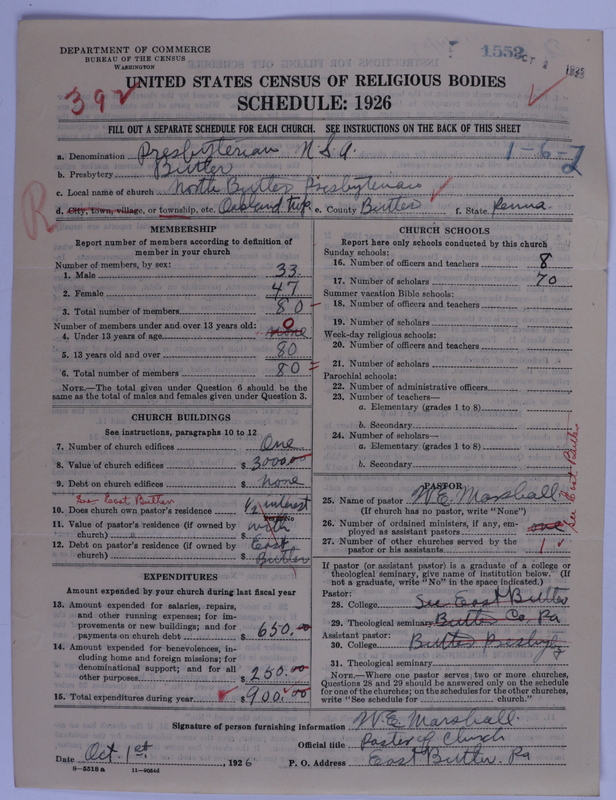 DEPARTMENT OF COMMERCE
BUREAU OF THE CENSUS
WASHINGTON
1553
OCT 2
392
UNITED STATES CENSUS OF RELIGIOUS BODIES
SCHEDULE: 1926
FILL OUT A SEPARATE SCHEDULE FOR EACH CHURCH. SEE INSTRUCTIONS ON THE BACK OF THIS SHEET
a. Denomination Presbyterian U.S.A.
1-6-2
b. Presbytery Butler
c. Local name of church North Butler Presbyterian
R
d. City, town, village, or township, etc. Oakland Twp. e. County Butler f. State Penna.
MEMBERSHIP
Report number of members according to definition of
member in your church
Number of members, by sex:
1. Male 33
2. Female 47
3. Total number of members 80
Number of members under and over 13 years old:
4. Under 13 years of age none 0
5. 13 years old and over 80
6. Total number of members 80
NOTE.—The total given under Question 6 should be the
same as the total of males and females given under Question 3.
CHURCH BUILDINGS
See instructions, paragraphs 10 to 12
7. Number of church edifices One
8. Value of church edifices $ 3000.00
9. Debt on church edifices $ none
See East Butler
10. Does church own pastor's residence 1/2 interest
11. Value of pastor's residence (if owned by
church) $ with
12. Debt on pastor's residence (if owned by
church) $ East Butler
EXPENDITURES
Amount expended by your church during last fiscal year
13. Amount expended for salaries, repairs,
and other running expenses; for im-
provements or new buildings; and for
payments on church debt $ 650.00
14. Amount expended for benevolences, in-
cluding home and foreign missions; for
denominational support; and for all
other purposes $ 250.00
15. Total expenditures during year $ 900.00
CHURCH SCHOOLS
Report here only schools conducted by this church
Sunday schools:
16. Number of officers and teachers 8
17. Number of scholars 70
Summer vacation Bible schools:
18. Number of officers and teachers
19. Number of scholars
Week-day religious schools:
20. Number of officers and teachers
21. Number of scholars
Parochial schools:
22. Number of administrative officers
23. Number of teachers—
a. Elementary (grades 1 to 8)
b. Secondary
24. Number of scholars—
a. Elementary (grades 1 to 8)
b. Secondary
See East Butler
PASTOR
25. Name of pastor W. E. Marshall
(If church has no pastor, write "None")
26. Number of ordained ministers, if any, em-
ployed as assistant pastors one
27. Number of other churches served by the
pastor or his assistants 1
If pastor (or assistant pastor) is a graduate of a college or
theological seminary, give name of institution below. (If
not a graduate, write "No" in the space indicated.)
Pastor:
28. College See East Butler
29. Theological seminary Butler Co. Pa
Assistant pastor:
30. College Butler Presby
31. Theological seminary
NOTE.—Where one pastor serves two or more churches,
Questions 28 and 29 should be answered only on the schedule
for one of the churches; on the schedules for the other churches,
write "See schedule for church."
Signature of person furnishing information W. E. Marshall
Official title Pastor of Church
Date Oct. 1st, 1926 P. O. Address East Butler. Pa
8—5518 a 11—9054d